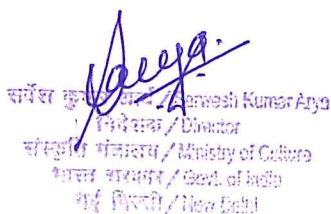 Arya.
सर्वेश कुमार आर्य / Sarwesh Kumar Arya
निदेशक / Director
संस्कृति मंत्रालय / Ministry of Culture
भारत सरकार / Govt. of India
नई दिल्ली / New Delhi